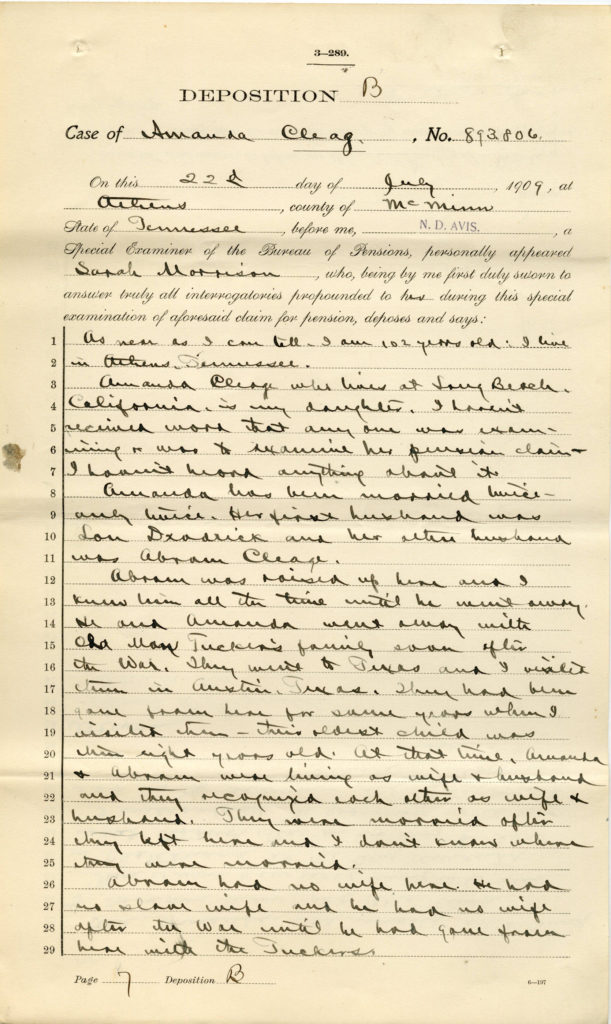 3—289.
DEPOSITION B
Case of Amanda Cleag, No. 893806.
On this 22d day of July, 1909, at
Athens, county of McMinn
State of Tennessee, before me, N. D. AVIS., a
Special Examiner of the Bureau of Pensions, personally appeared
Sarah Morrison, who, being by me first duly sworn to
answer truly all interrogatories propounded to her during this special
examination of aforesaid claim for pension, deposes and says:
1 As near as I can tell I am 102 years old: I live
2 in Athens, Tennessee.
3 Amanda Cleage who lives at Long Beach,
4 California, is my daughter. I haven't
5 received word that any one was exam-
6 ining or was to examine her pension claim
7 I haven't heard anything about it
8 Amanda has been married twice—
9 only twice. Her first husband was
10 Lon Deadrick and her other husband
11 was Abram Cleage.
12 Abram was raised up here and I
13 knew him all the time until he went away.
14 He and Amanda went away with
15 Old Man Tucker's family soon after
16 the War. They went to Texas and I visited
17 them in Austin, Texas. They had been
18 gone from here for some years when I
19 visited them — their oldest child was
20 then eight years old. At that time, Amanda
21 & Abram were living as wife & husband
22 and they recognized each other as wife &
23 husband. They were married after
24 they left here and I don't know where
25 they were married.
26 Abram had no wife here. He had
27 no slave wife and he had no wife
28 after the War until he had gone from
29 here with the Tuckers.
Page 7 Deposition B
6—197